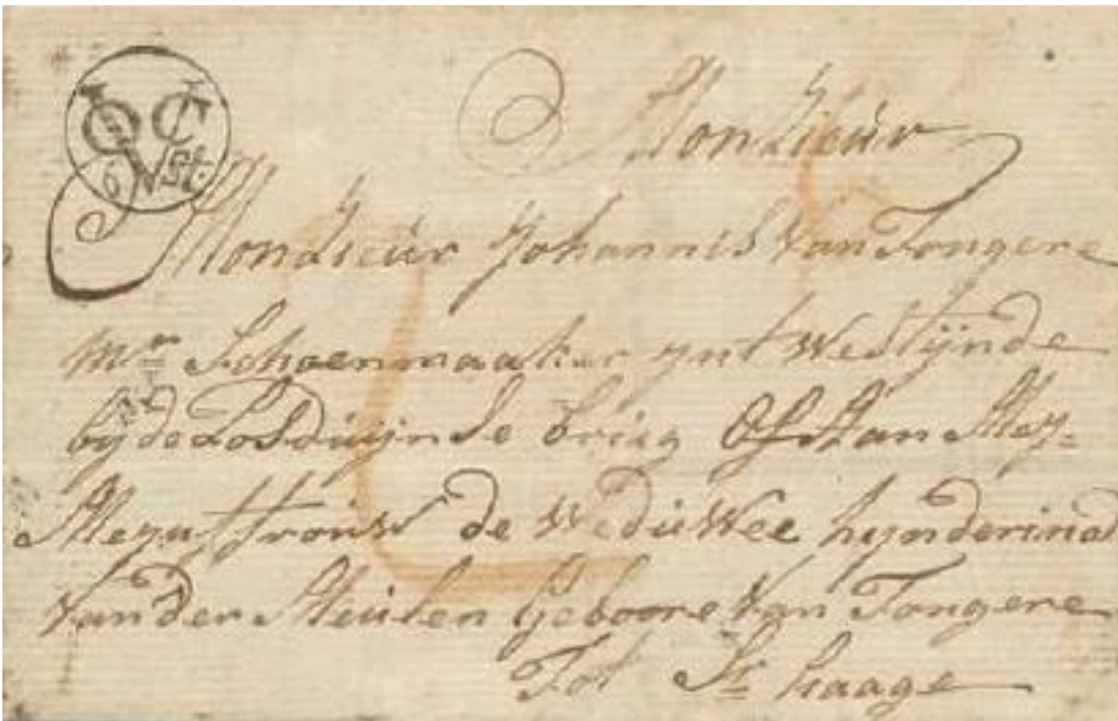 VOC
6 St.
Monsieur
Monsieur Johannis Van Tongere
Mr Schoenmaaker ynt Westijnde
bij de Losduijnse brug Of Aan Mey-
Meyuffrouw de Weduwee hynderina
Van der Meulen Geboore Van Tongere
Tot S haage